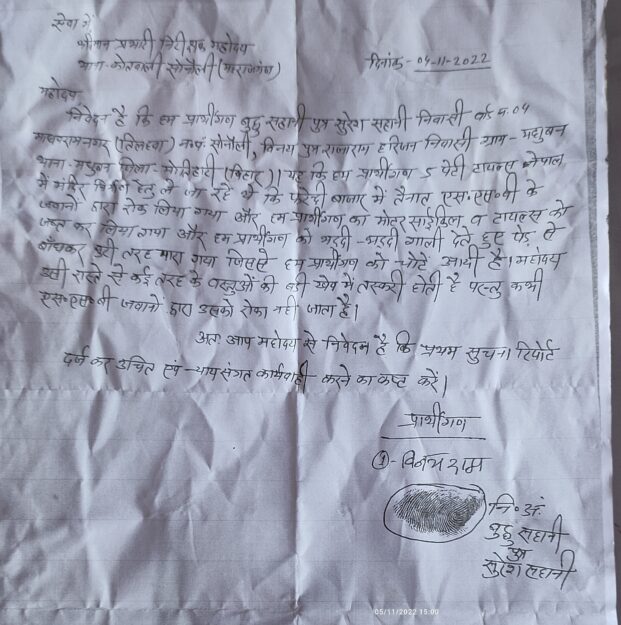 सेवा में
श्रीमान प्रभारी निरीक्षक महोदय
थाना- कोतवाली सोनौली (महाराजगंज)
दिनांक- 04-11-2022
महोदय
निवेदन है कि हम प्रार्थीगण बुद्धु सहानी पुत्र सुरेश सहानी निवासी वार्ड न 04
(तिलहवा) नपं. सोनौली, विनय पुत्र राजाराम हरिजन निवासी ग्राम- मधुबन
थाना- मधुबन जिला- मोतीहारी (बिहार)। यह कि हम प्रार्थीगण 5 पेटी टायल्स नेपाल
में मंदिर हेतु ले जा रहे थे कि बाजार में तैनात एस.एस.बी के
जवानो द्वारा रोक लिया गया और हम प्रार्थीगण का मोटर साईकिल व टायल्स को
जब्त कर लिया गया और हम प्रार्थीगण को भद्दी-भद्दी गाली देते हुए पेड़ से
बाँधकर बुरी तरह मारा गया जिससे हम प्रार्थीगण को चोटे आयी है। महोदय
इसी रास्ते से कई तरह के वस्तुओं की बड़ी खेप में तस्करी होती है परन्तु कभी
एस.एस.बी जवानों द्वारा उसको रोका नही जाता है।
अतः आप महोदय से निवेदन है कि प्रथम सुचना रिपोर्ट
दर्ज कर उचित एंव न्यायसंगत कार्यवाही करने का कष्ट करें।
प्रार्थीगण
①- विनय राम
नि० अं.
बुद्धु सहानी
पुत्र
सुरेश सहानी
05/11/2022 15:09